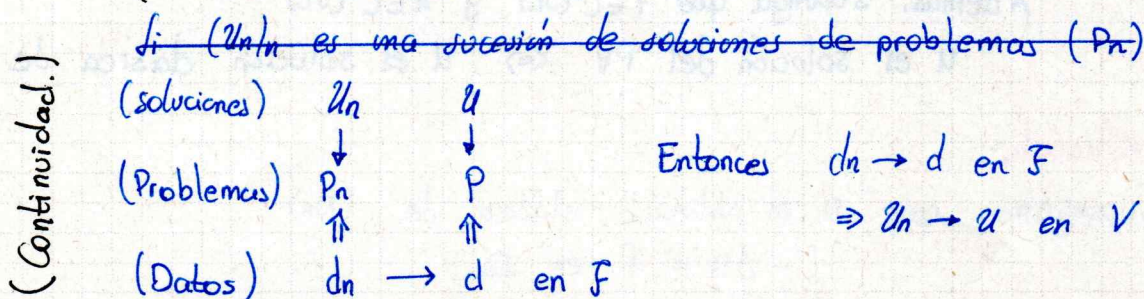 (Continuidad.)
Si (Un)n es una sucesión de soluciones de problemas (Pn)
(soluciones) Un U
↓ ↓
(Problemas) Pn P Entonces dn → d en F
⇑ ⇑ ⇒ Un → U en V
(Datos) dn → d en F